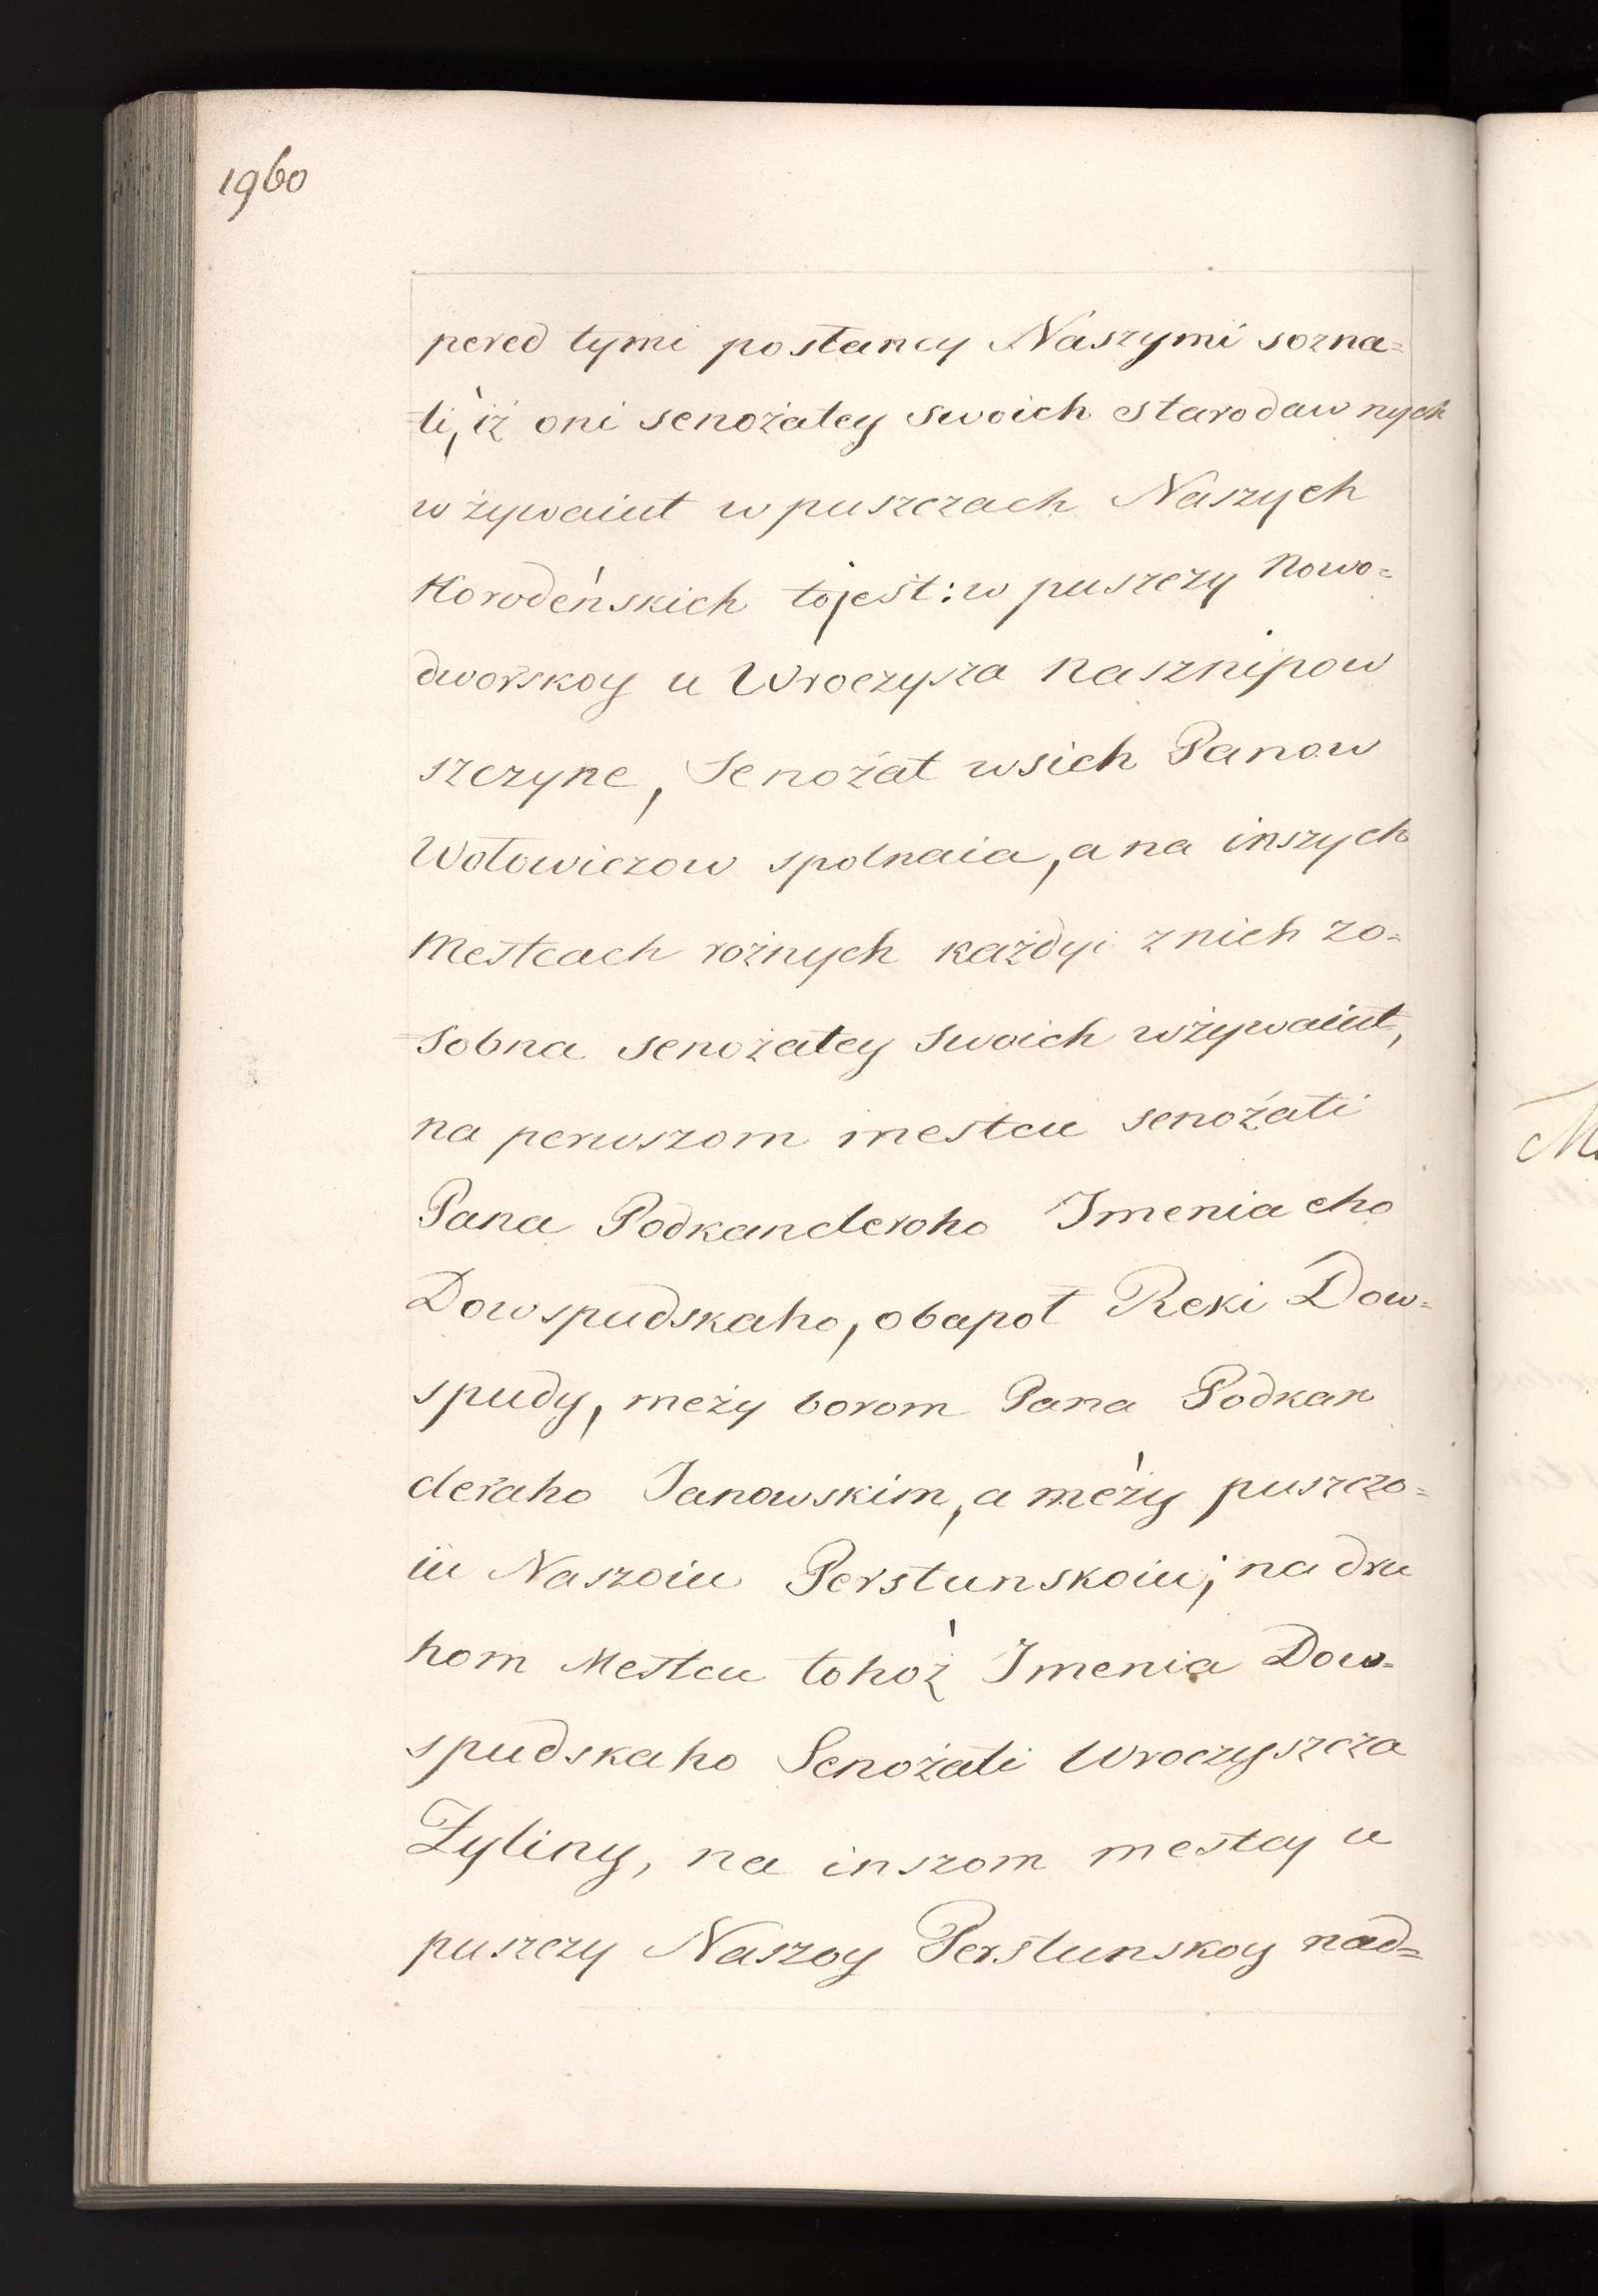 1960
pered tymi posłancy Naszymi sozna=
li, iż oni senożatey swoich starodawnych
wżywaiut w puszczach Naszych
Horodeńskich tojest: w puszczy Nowo=
dworskoy u Wroczysza Nasznipow
szczyne, Senożat wsich Panow
Wołowiczow spolnaia, a na inszych
Mestcach rożnych każdyi z nich zo=
sobna senożatey swoich wżywaiut,
na perwszom mestcu senożati
Pana Podkancleroho Imenia eho
Dowspudskaho, obapoł Reki Dow=
spudy, meży borom Pana Podkan
cleraho Janowskim, a meży puszczo=
iu Naszoiu Perstunskoiu; na dru
hom Mestcu tohoż Imenia Dow=
spudskaho Senożati Wroczyszcza
Żyliny, na inszom mestcy u
puszczy Naszoy Perstunskoy nad=